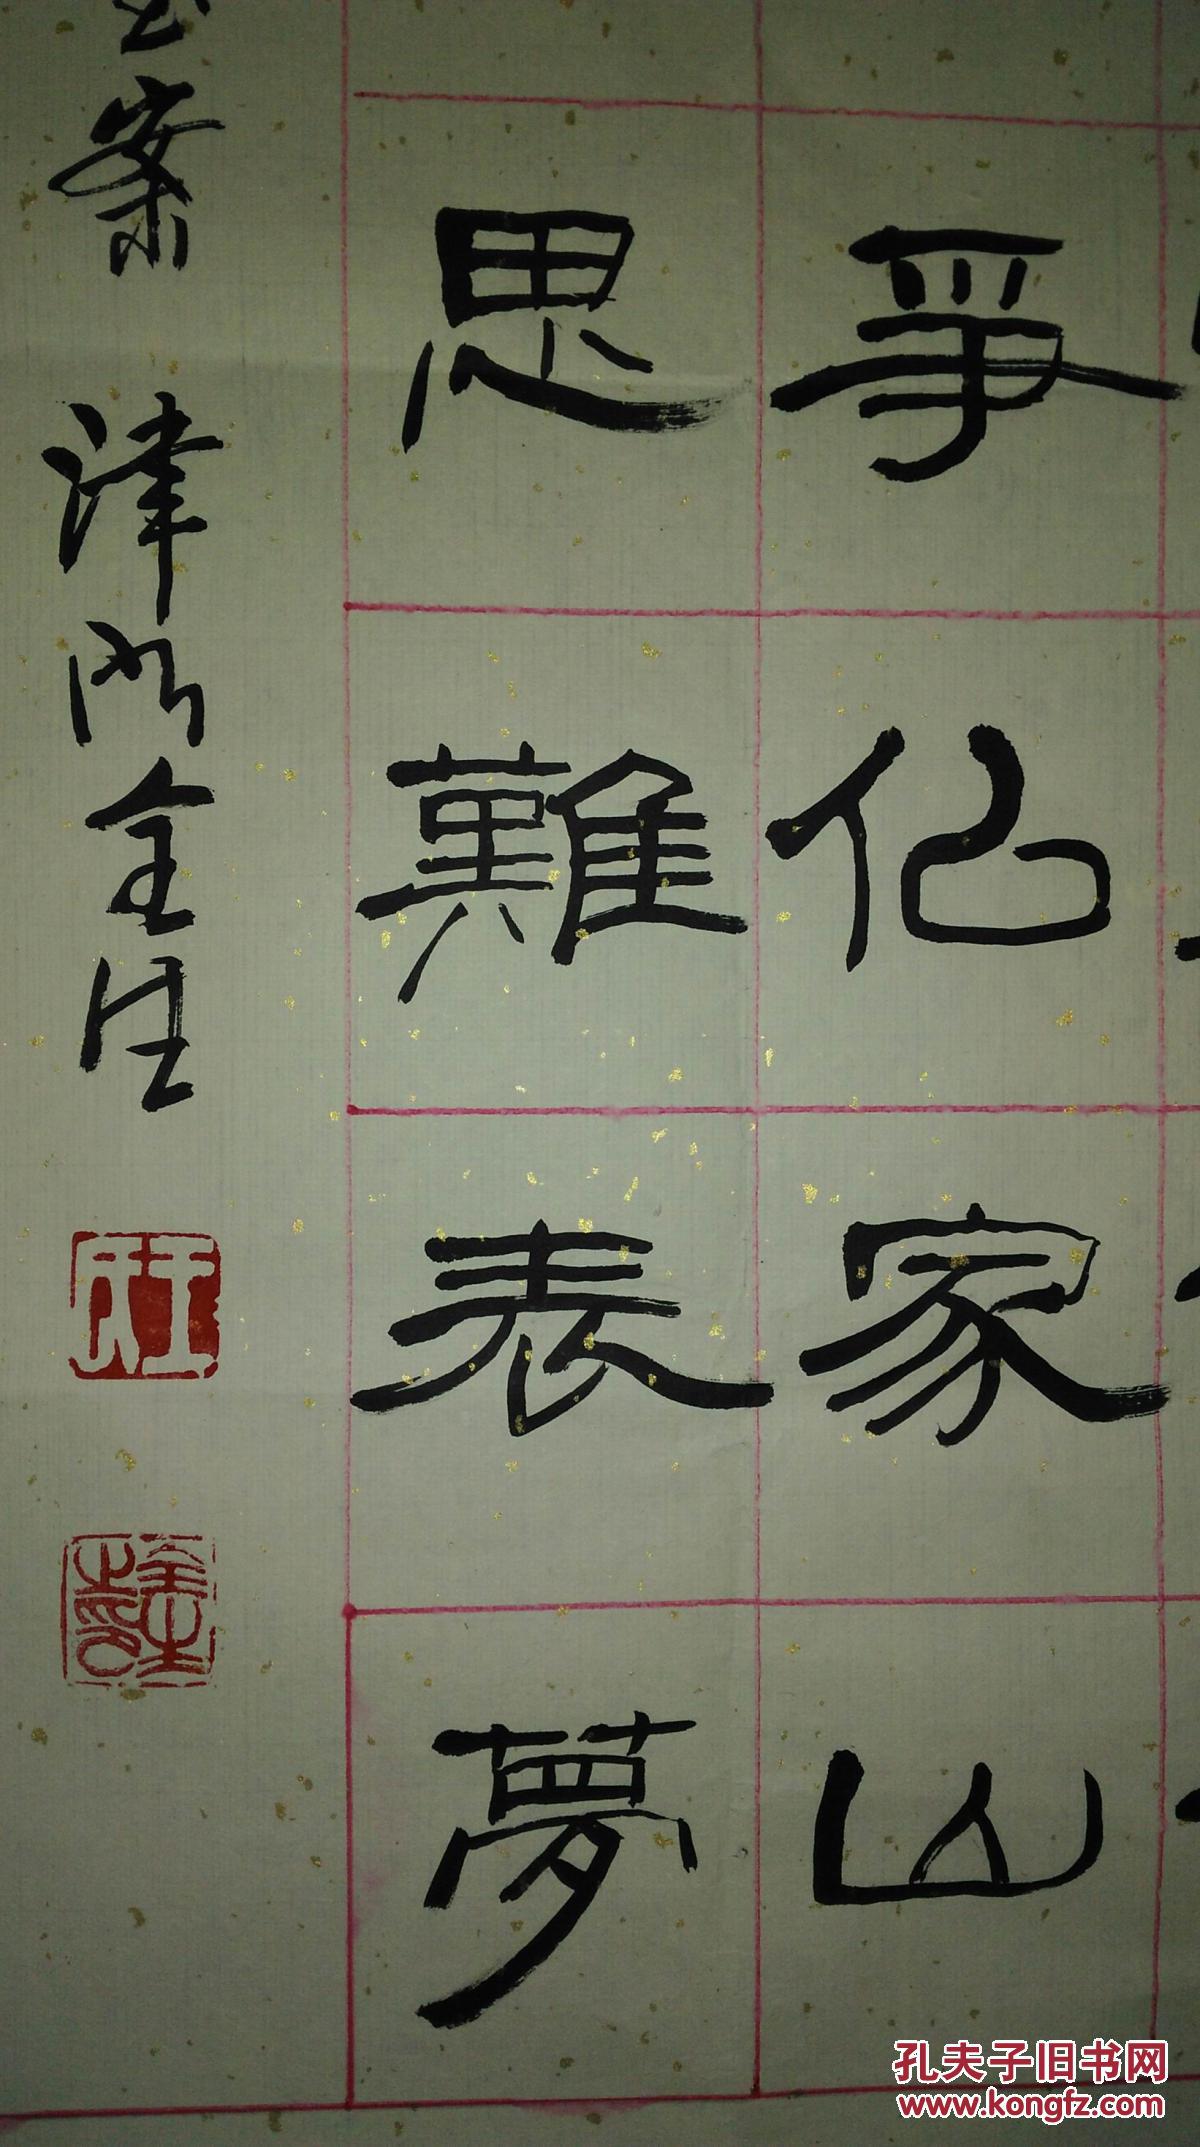 爭仙家山
思難表夢
案 津門全生
孔夫子旧书网
www.kongfz.com